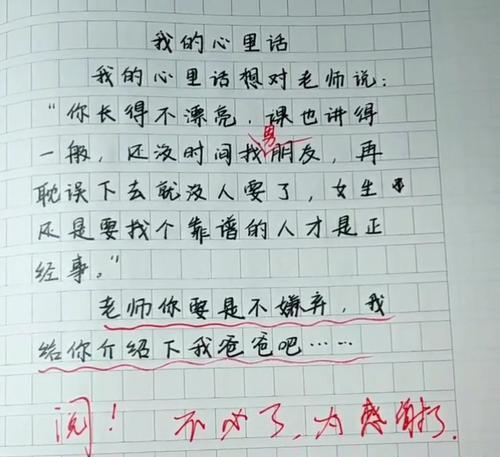 我的心里话
我的心里话想对老师说：
“你长得不漂亮，课也讲得
男
一般，还没时间找朋友，再
耽误下去就没人要了，女生
还是要找个靠谱的人才是正
经事。”
老师你要是不嫌弃，我
给你介绍下我爸爸吧……
阅！不必了，太感谢了.